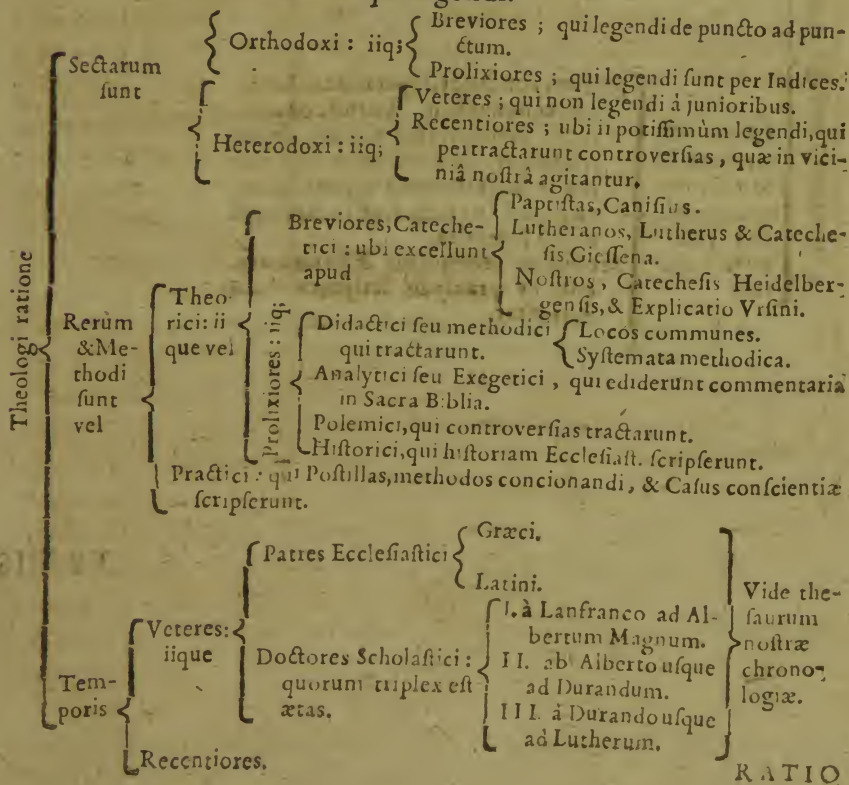 Theologi ratione
Sectarum
sunt
Orthodoxi : iiq;
Breviores ; qui legendi de puncto ad pun-
ctum.
Prolixiores ; qui legendi sunt per Indices.
Heterodoxi : iiq;
Veteres ; qui non legendi â junioribus.
Recentiores ; ubi ii potissimùm legendi, qui
pertractarunt controversias, quæ in vici-
niâ nostrâ agitantur.
Rerùm
&Me-
thodi
sunt
vel
Theo-
rici: ii
que vel
Breviores, Cateche-
tici : ubi excellunt
apud
Papistas, Canisius.
Lutheranos, Lutherus & Cateche-
sis Giessena.
Nostros, Catechesis Heidelber-
gensis, & Explicatio Vrsini.
Prolixiores : iiq;
Didactici seu methodici
qui tractarunt.
Locos communes.
Systemata methodica.
Analytici seu Exegetici, qui ediderunt commentaria
in Sacra Biblia.
Polemici, qui controversias tractarunt.
Historici, qui historiam Ecclesiast. scripserunt.
Practici : qui Postillas, methodos concionandi, & Casus conscientiæ
scripserunt.
Tem-
poris
Veteres:
iique
Patres Ecclesiastici
Græci.
Latini.
Doctores Scholastici :
quorum triplex est
ætas.
I. à Lanfranco ad Al-
bertum Magnum.
II. ab Alberto usque
ad Durandum.
III. à Durando usque
ad Lutherum.
Vide the-
saurum
nostræ
chrono-
logiæ.
Recentiores.
RATIO